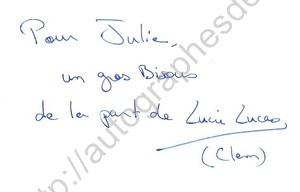 Pour Julie,
un gros Bisous
de la part de Lucie Lucas
(Clem)
http://autographesde